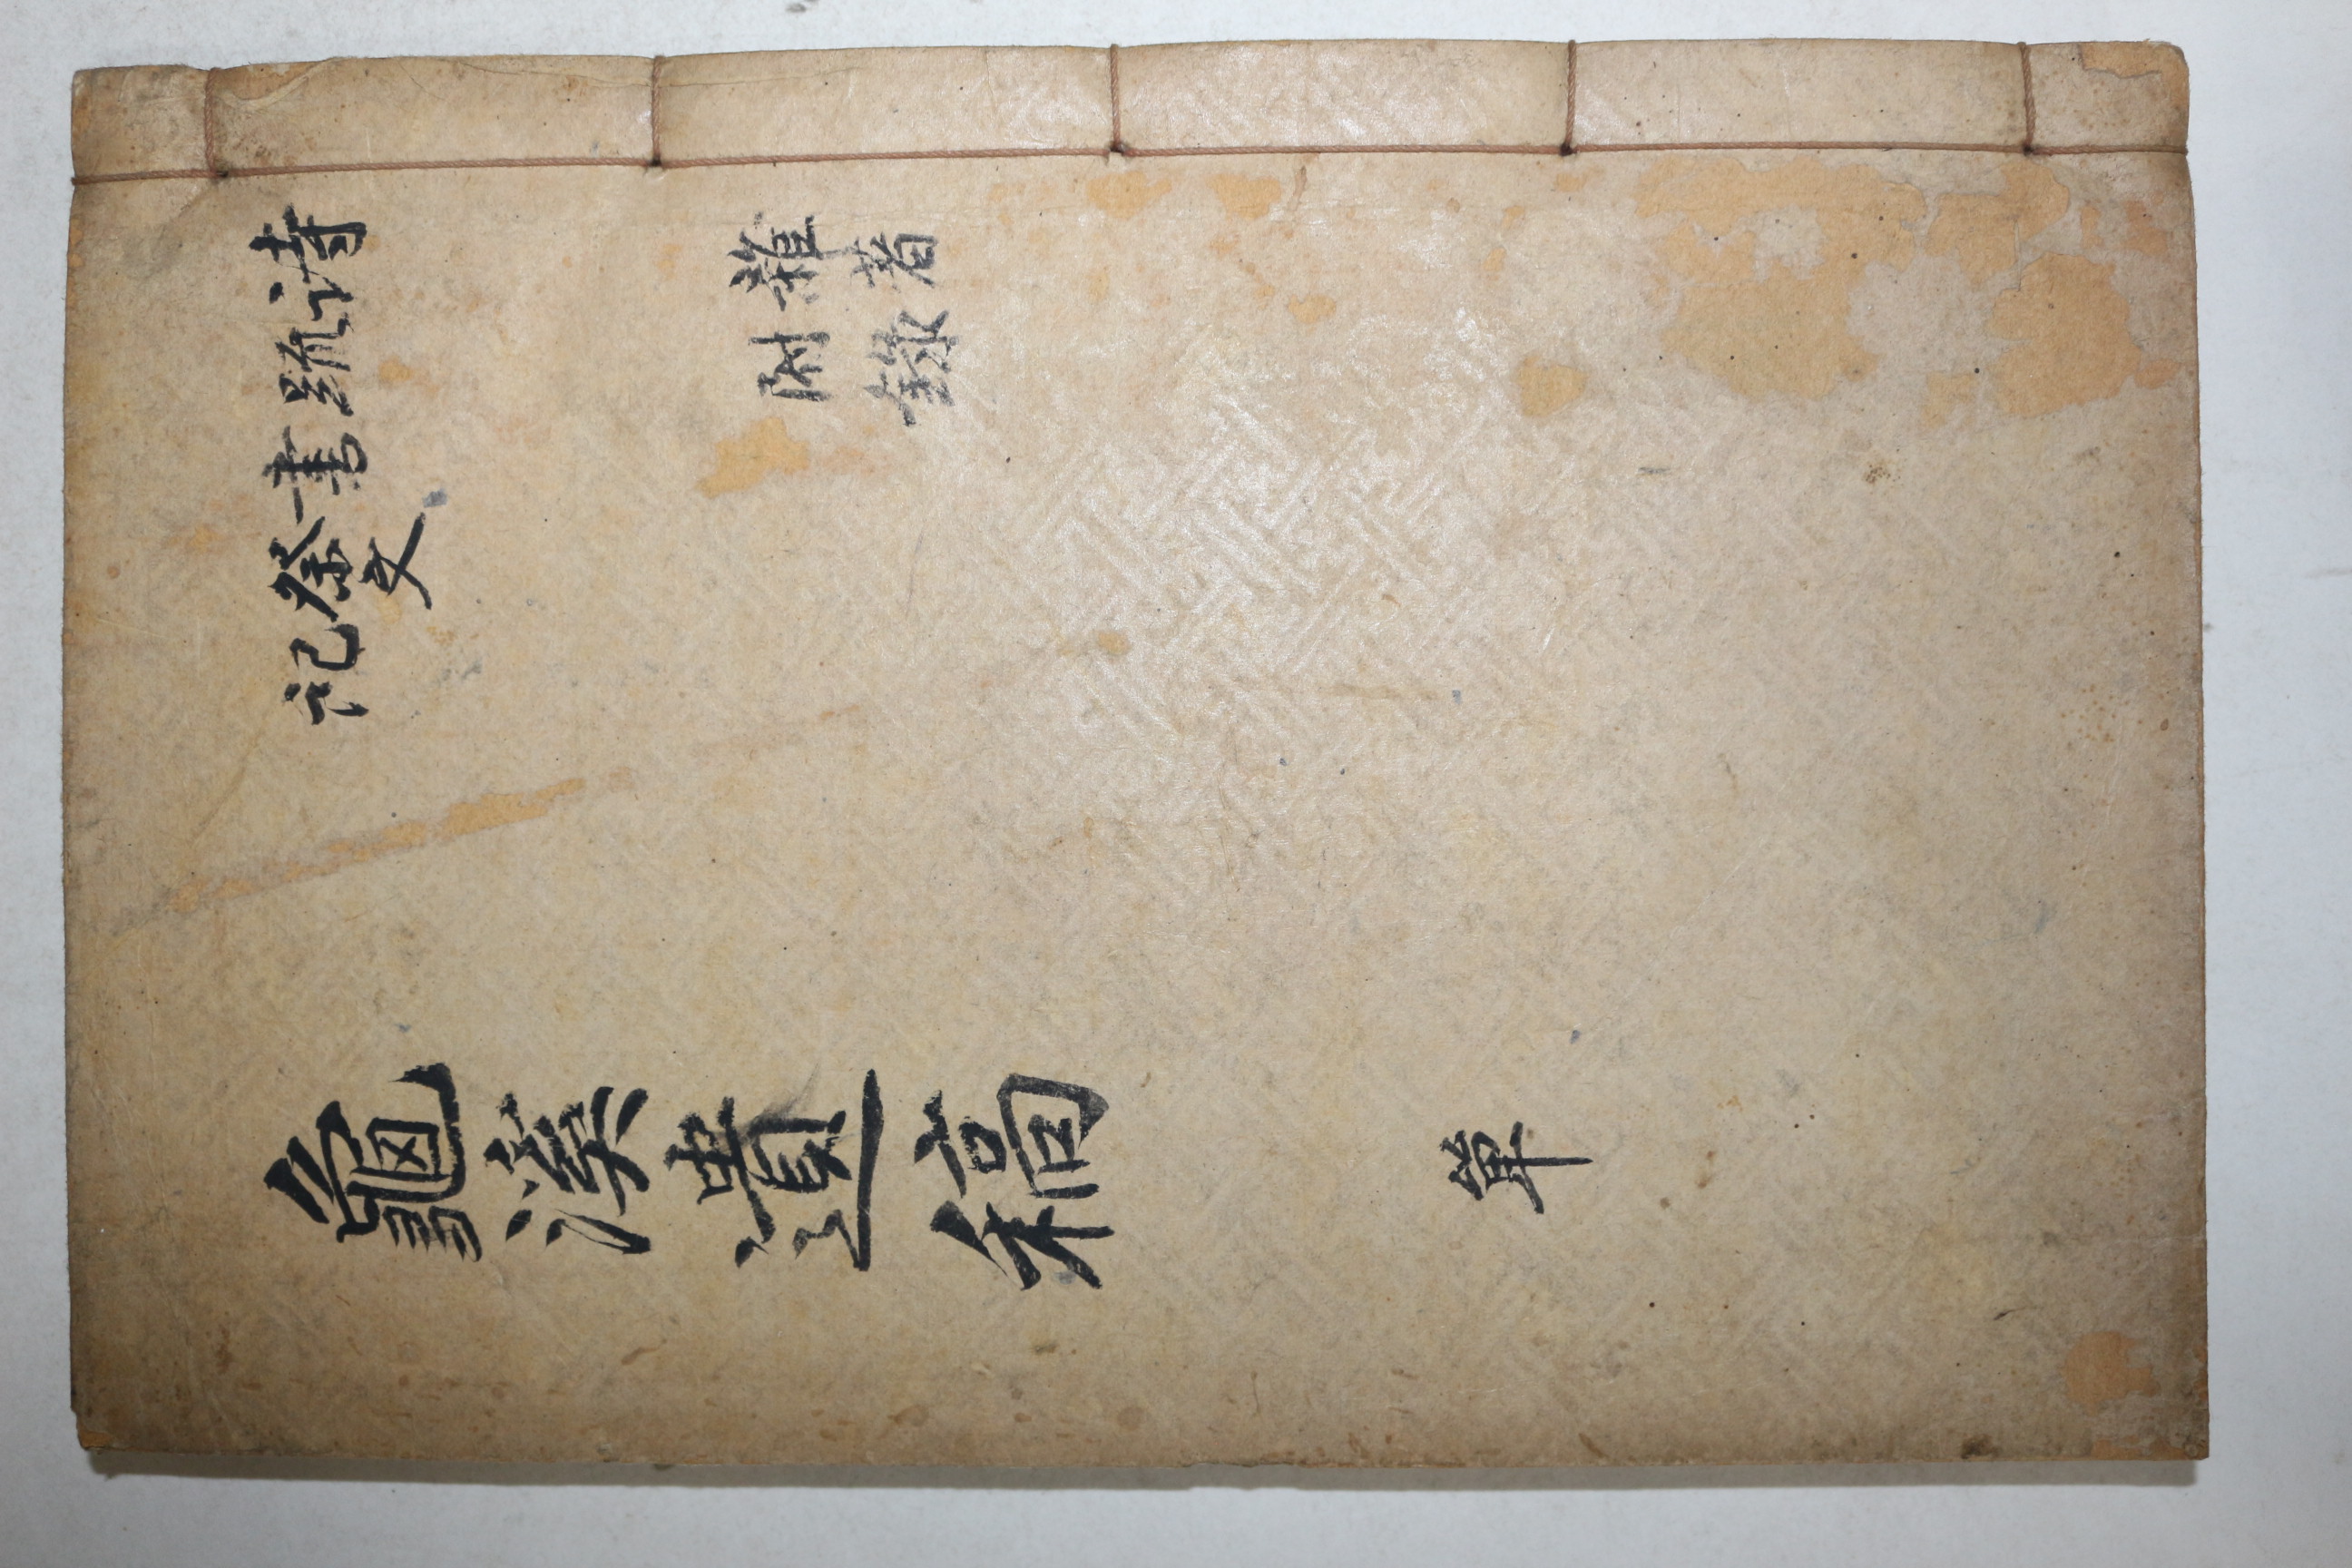 詩
疏
書
祭文
記
雜著
附錄
龜溪遺稿
單